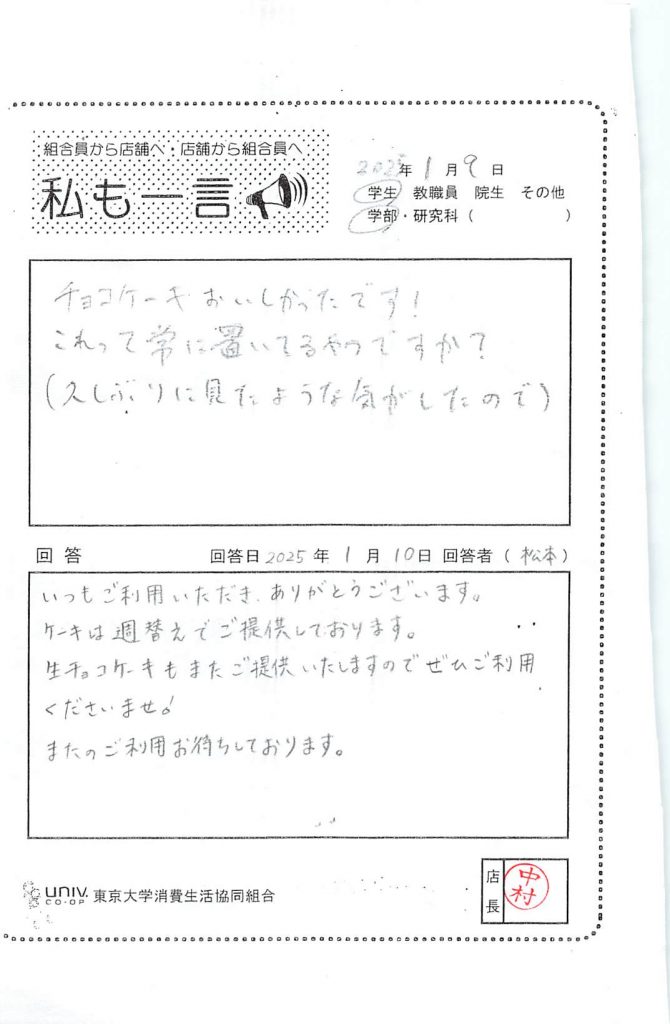 組合員から店舗へ・店舗から組合員へ
私も一言
2025年1月9日
学生 教職員 院生 その他
学部・研究科( )
チョコケーキおいしかったです!
これって常に置いてるやつですか?
(久しぶりに見たような気がしたので)
回答 回答日2025年1月10日 回答者(松本)
いつもご利用いただき、ありがとうございます。
ケーキは週替えでご提供しております。
生チョコケーキもまたご提供いたしますのでぜひご利用
くださいませ!
またのご利用お待ちしております。
UNIV. CO-OP 東京大学消費生活協同組合
店長 中村